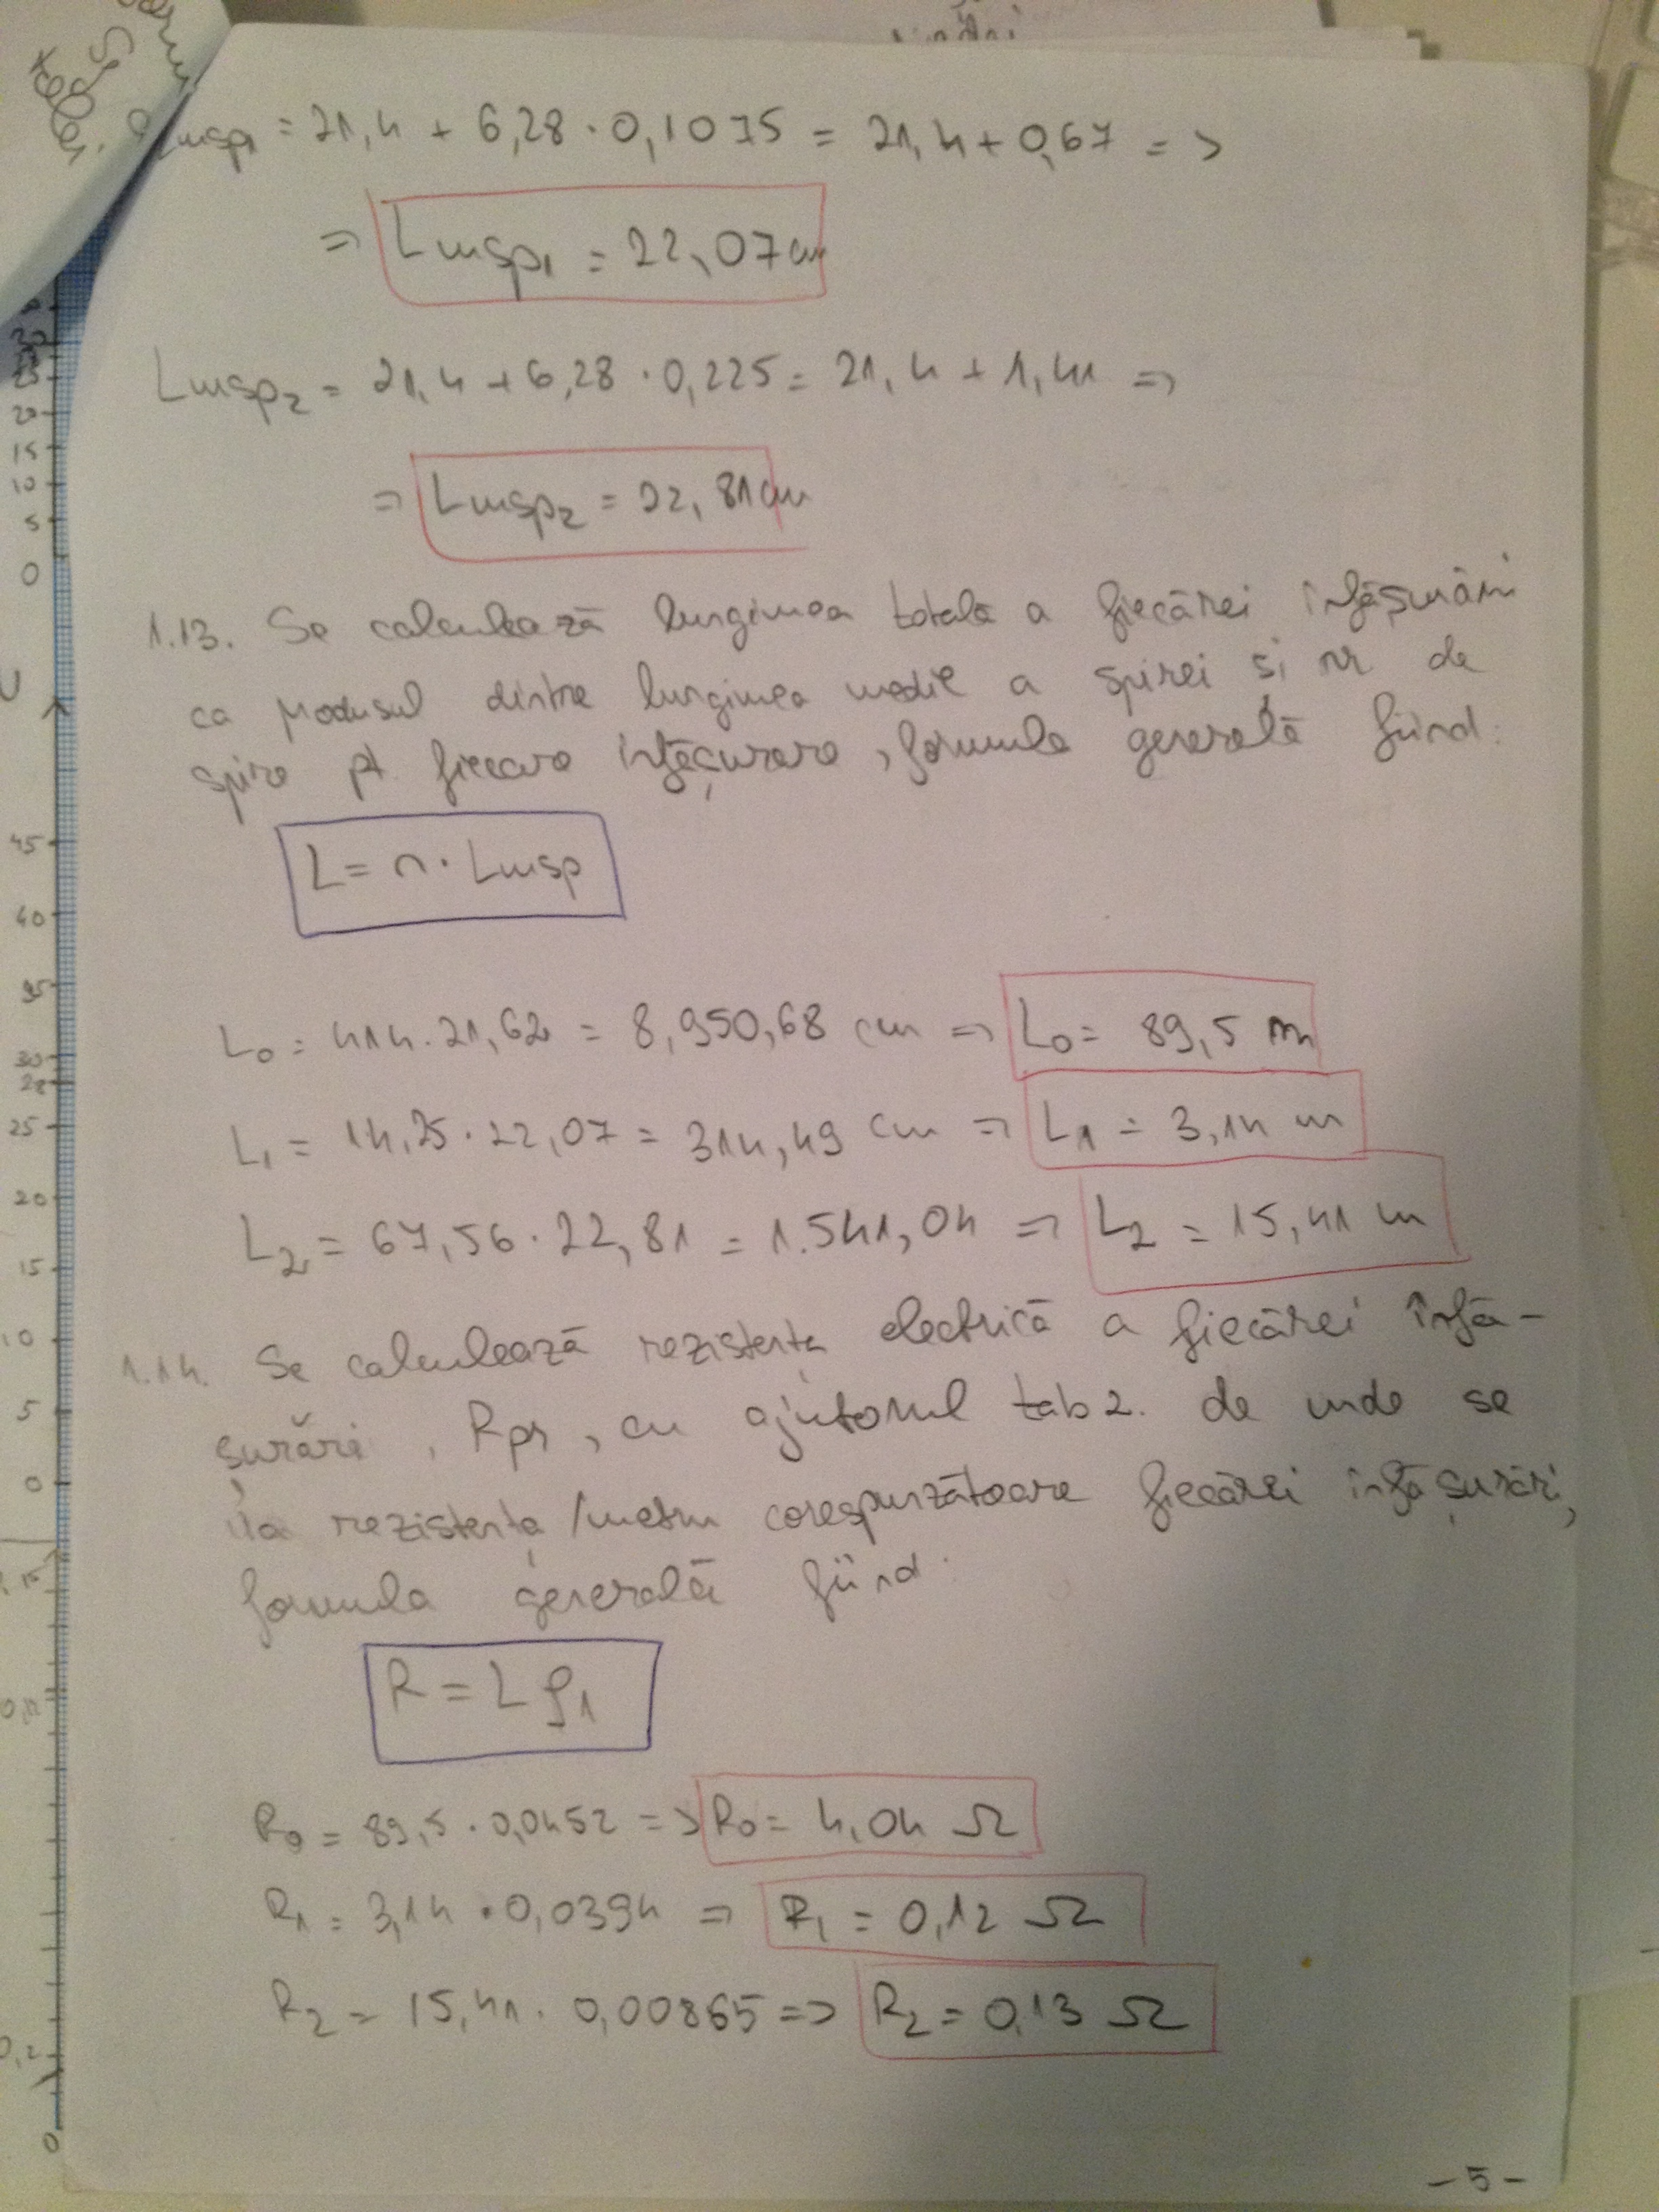 Lmsp1 = 21,4 + 6,28 · 0,1075 = 21,4 + 0,67 =>
=> Lmsp1 = 22,07 cm
Lmsp2 = 21,4 + 6,28 · 0,225 = 21,4 + 1,41 =>
=> Lmsp2 = 22,81 cm
1.13. Se calculează lungimea totală a fiecărei înfășurări
ca produsul dintre lungimea medie a spirei și nr de
spire pt. fiecare înfășurare, formula generală fiind:
L = n · Lmsp
L0 = 414 · 21,62 = 8,950,68 cm => L0 = 89,5 m
L1 = 14,25 · 22,07 = 314,49 cm => L1 = 3,14 m
L2 = 67,56 · 22,81 = 1.541,04 => L2 = 15,41 m
1.14. Se calculează rezistența electrică a fiecărei înfă-
șurări, Rpr, cu ajutorul tab 2. de unde se
ia rezistența/metru corespunzătoare fiecărei înfășurări,
formula generală fiind:
R = L ρ1
R0 = 89,5 · 0,0452 => R0 = 4,04 Ω
R1 = 3,14 · 0,0394 => R1 = 0,12 Ω
R2 = 15,41 · 0,00865 => R2 = 0,13 Ω
- 5 -
30
25
20
15
10
5
0
45
40
35
30
28
25
20
15
10
5
0
0